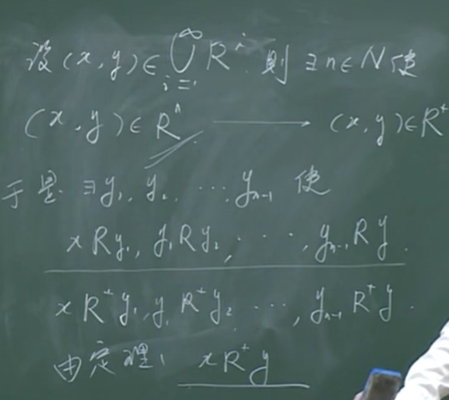 设(x,y)∈⋃_{i=1}^{∞}R^i 则 ∃n∈N使
(x,y)∈R^n ⟶ (x,y)∈R^+
于是 ∃y₁, y₂, …, y_{n-1} 使
xRy₁, y₁Ry₂, …, y_{n-1}Ry.
xR^+y₁, y₁R^+y₂, …, y_{n-1}R^+y.
由定理1 xR^+y